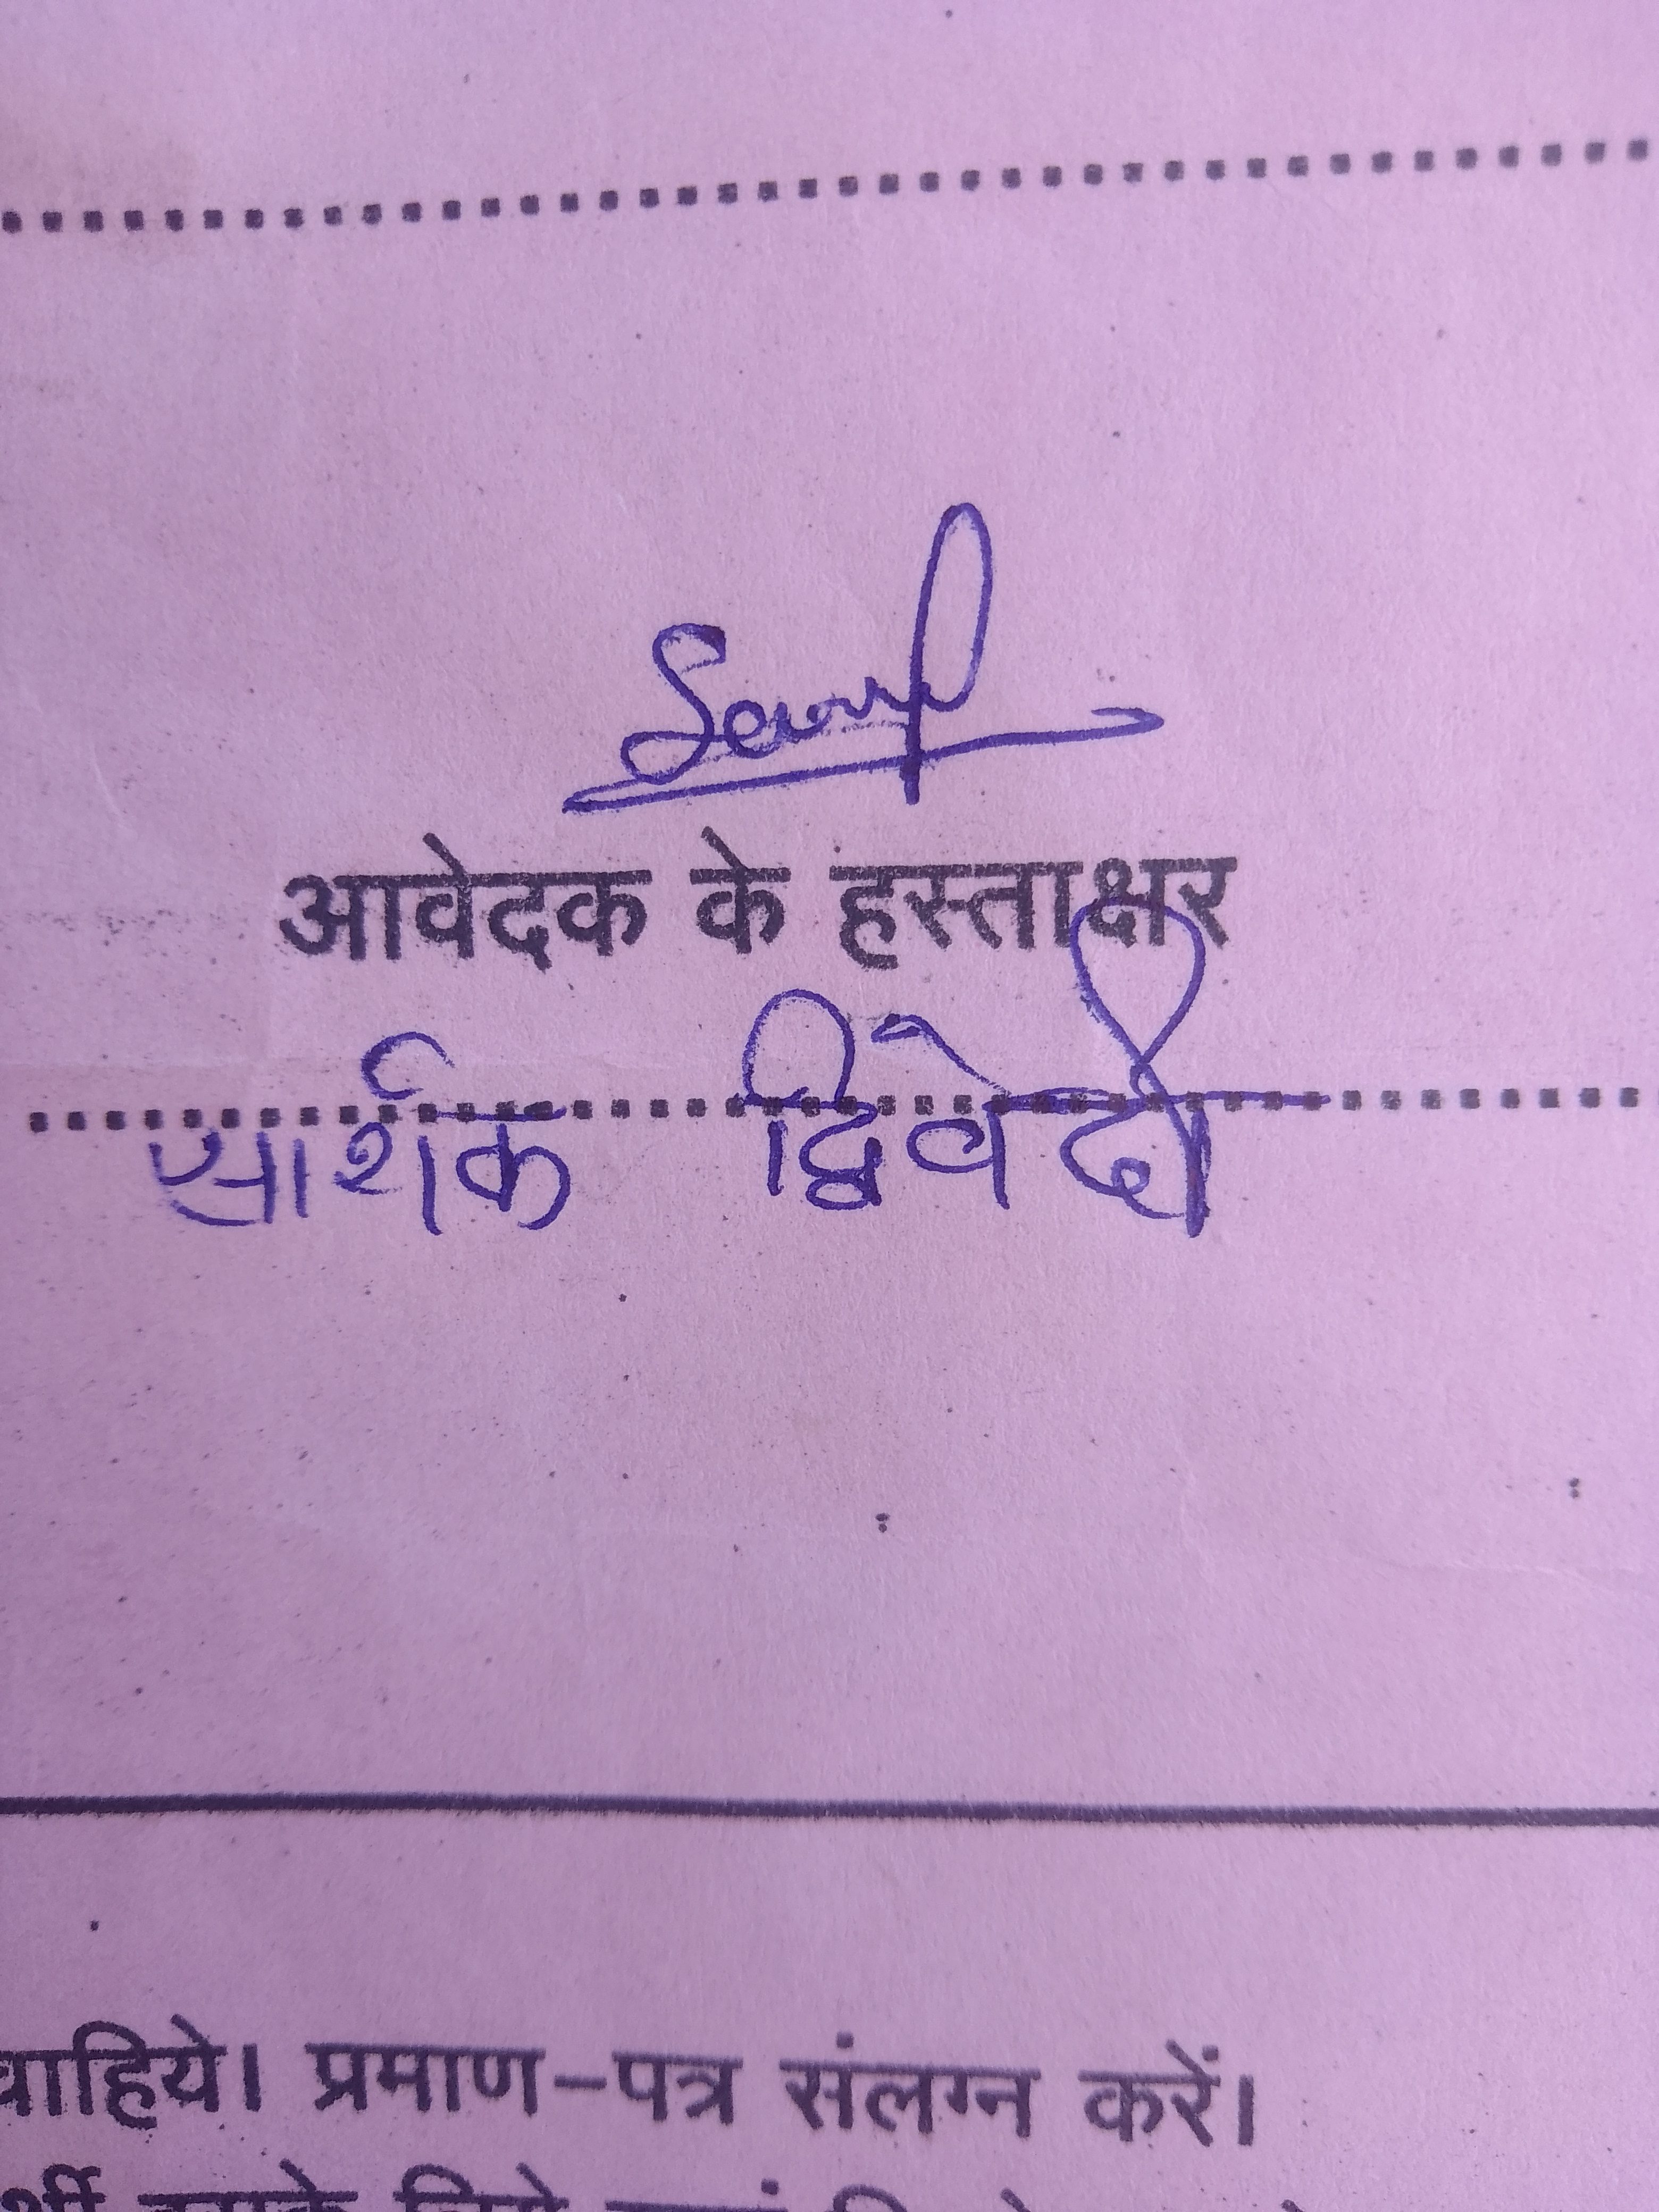 आवेदक के हस्ताक्षर
सार्थक द्विवेदी
चाहिये। प्रमाण-पत्र संलग्न करें।